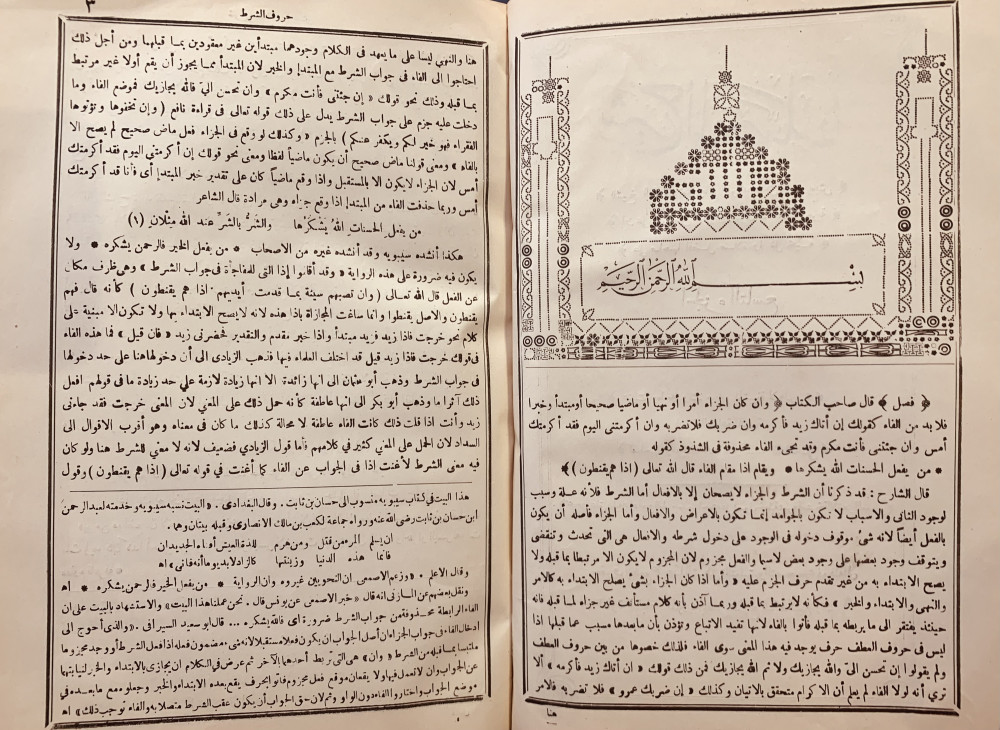 بسم الله الرحمن الرحيم
﴿ فصل ﴾ قال صاحب الكتاب ﴿ وان كان الجزاء أمرا أو نهيا أو ماضيا صحيحا أو مبتدأ وخبرا
فلا بد من الفاء كقولك إن أتاك زيد فأكرمه وان ضربك فلا تضربه وان أكرمتنى اليوم فقد أكرمتك
أمس وان جئتنى فأنت مكرم وقد تجىء الفاء محذوفة فى الشذوذ كقوله
* من يفعل الحسنات الله يشكرها * ويقام إذا مقام الفاء قال الله تعالى ( إذا هم يقنطون )﴾
قال الشارح : قد ذكرنا أن الشرط والجزاء لا يصحان إلا بالافعال أما الشرط فلأنه علة وسبب
لوجود الثانى والاسباب لا تكون بالجوامد إنما تكون بالاعراض والافعال وأما الجزاء فأصله أن يكون
بالفعل أيضاً لانه شئ موقوف دخوله فى الوجود على دخول شرطه والافعال هى التى تحدث وتنقضى
ويتوقف وجود بعضها على وجود بعض لاسيما والفعل مجزوم لان المجزوم لا يكون الا مرتبطا بما قبله ولا
يصح الابتداء به من غير تقدم حرف الجزم عليه « وأما اذا كان الجزاء بشئ يصلح الابتداء به كالامر
والنهى والابتداء والخبر » فكأنه لا يرتبط بما قبله وربما آذن بأنه كلام مستأنف غير جزاء لما قبله فانه
حينئذ يفتقر الى ما يربطه بما قبله فأتوا بالفاء لانها تفيد الاتباع وتؤذن بأن ما بعدها مسبب عما قبلها اذا
ليس فى حروف العطف حرف يوجد فيه هذا المعنى سوى الفاء فلذلك خصوها من بين حروف العطف
ولم يقولوا إن تحسن الىّ والله يجازيك ولا ثم الله يجازيك فمن ذلك قولك « ان أتاك زيد فأكرمه » ألا
ترى أنه لولا الفاء لم يعلم أن الاكرام متحقق بالاتيان وكذلك « إن ضربك عمرو » فلا تضربه فالامر
هنا
حروف الشرط
٣
هذا والنهى ليسا على ما يعهد فى الكلام وجودهما مبتدأين غير معقودين بما قبلهما ومن أجل ذلك
احتاجوا الى الفاء فى جواب الشرط مع المبتدإ والخبر لان المبتدأ مما يجوز أن يقع أولا غير مرتبط
بما قبله وذلك نحو قولك « إن جئتنى فأنت مكرم » وان تحسن الىّ فالله يجازيك فموضع الفاء وما
دخلت عليه جزم على جواب الشرط يدل على ذلك قوله تعالى فى قراءة نافع ( وإن تخفوها وتؤتوها
الفقراء فهو خير لكم ويكفر عنكم ) بالجزم « وكذلك لو وقع فى الجزاء فعل ماض صحيح لم يصح الا
بالفاء » ومعنى قولنا ماض صحيح أن يكون ماضياً لفظا ومعنى نحو قولك إن أكرمتنى اليوم فقد أكرمتك
أمس لان الجزاء لا يكون الا بالمستقبل واذا وقع ماضياً كان على تقدير خبر المبتدإ أى فأنا قد أكرمتك
أمس وربما حذفت الفاء من المبتدإ اذا وقع جزاء وهى مرادة قال الشاعر
من يفعل الحسنات اللهُ يشكرُها والشرُّ بالشرِّ عند الله مثلانِ (١)
هكذا أنشده سيبويه وقد أنشده غيره من الاصحاب * من يفعل الخير فالرحمن يشكره * ولا
يكون فيه ضرورة على هذه الرواية « وقد أقاموا إذا التى للمفاجأة فى جواب الشرط » وهى ظرف مكان
عن الفعل قال الله تعالى ( وان تصبهم سيئة بما قدمت أيديهم اذا هم يقنطون ) كأنه قال فهم
يقنطون والاصل يقنطوا وانما ساغت المجازاة باذا هذه لانه لا يصح الابتداء بها ولا تكون الا مبنية على
كلام نحو خرجت فاذا زيد فزيد مبتدأ واذا خبر مقدم والتقدير فحضرنى زيد « فان قيل » فما هذه الفاء
فى قولك خرجت فاذا زيد قيل قد اختلف العلماء فيها فذهب الزيادى الى أن دخولها هنا على حد دخولها
فى جواب الشرط وذهب أبو عثمان الى أنها زائدة الا انها زيادة لازمة على حد زيادة ما فى قولهم افعل
ذلك آثرا ما وذهب أبو بكر الى انها عاطفة كأنه حمل ذلك على المعنى لأن المعنى خرجت فقد جاءنى
زيد وأنت اذا قلت ذلك كانت الفاء عاطفة لا محالة كذلك ما كان فى معناه وهو أقرب الاقوال الى
السداد لان الحمل على المعنى كثير فى كلامهم فأما قول الزيادى فضعيف لانه لا معنى للشرط هنا ولو كان
فيه معنى الشرط لأغنت اذا فى الجواب عن الفاء كما أغنت فى قوله تعالى ( إذا هم يقنطون ) وقول
هذا البيت فى كتاب سيبويه منسوب الى حسان بن ثابت . وقال البغدادى . « والبيت نسبه سيبويه وخدمته لعبد الرحمن
ابن حسان بن ثابت رضى الله عنه ورواه جماعة لكعب بن مالك الانصارى وقبله بيتان وهما .
ان يسلم المرء من قتل ومن هرم للذة العيش أفناه الجديدان
فانما هذه الدنيا وزينتها كالزاد لا بد يوما أنه فانى » اه
وقال الاعلم . « وزعم الاصمعى ان النحويين غيروه وان الرواية * من يفعل الخير فالرحمن يشكره * اه
ونقل بعضهم عن المازنى انه قال « خبر الاصمعى عن يونس قال . نحن عملنا هذا البيت » والاستشهاد بالبيت على ان
الفاء الرابطة محذوفة من جواب الشرط ضرورة اى فالله يشكره ... قال ابو سعيد السيرافى . « والذى أحوج الى
ادخال الفاء فى جواب الجزاء ان أصل الجواب ان يكون فعلا مستقبلا لانه شىء مضمون فعله اذا فعل الشرط أو وجد مجزوما
ملتبسا بما قبله من الشرط « وان » هى التى تربط أحدهما بالآخر ثم عرض فى الكلام ان يجازى بالابتداء والخبر لنيابتهما
عن الجواب وان لا تعمل فيهما ولا يقعان موقع فعل مجزوم فأتوا بحرف يقع بعده الابتداء والخبر وجعلوه مع ما بعده فى
موضع الجواب واختاروا الفاء دون الواو وثم لان حق الجواب أن يكون عقب الشرط متصلا به والفاء توجب ذلك » اه